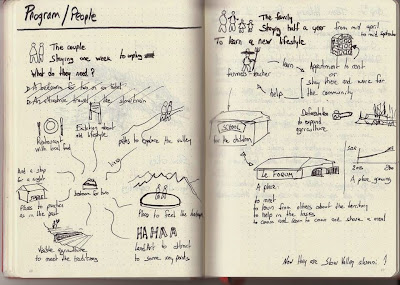 Program / People
The couple
Staying one week to unplug
What do they need?
Restaurant
with local food
Exhibition about
old lifestyle
paths to explore the valley
And a stop
for a night
bedroom for two
Places to practise
as in the past
Places to feel the
Visible agriculture
to meet the traditions
LandArt to attract
to some key points
The family
Staying half a year
from mid april
to mid september
To learn a new lifestyle
farmers - teacher
learn
help
Apartment to rent
or
stay there and work for
the community
SCHOOL
for the children
Deforestation
to expand
agriculture
Le FORUM
A place
to meet
to learn from others about the territory
to help in the tasks
to come and
A place growing
Now they are Slow Valley